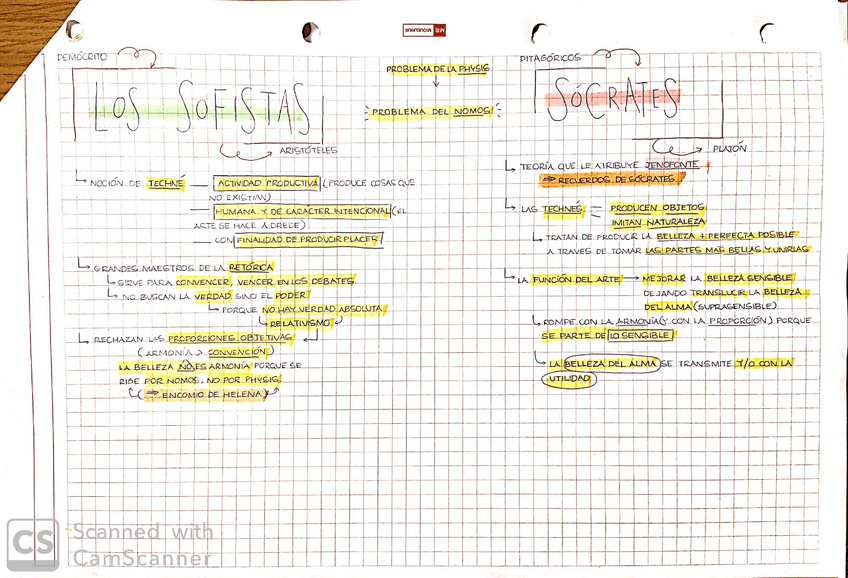 DEMÓCRITO
LOS SOFISTAS
ARISTÓTELES
NOCIÓN DE TECHNÉ — ACTIVIDAD PRODUCTIVA (PRODUCE COSAS QUE
NO EXISTIAN)
— HUMANA Y DE CARÁCTER INTENCIONAL (EL
ARTE SE HACE ADREDE)
— CON FINALIDAD DE PRODUCIR PLACER
GRANDES MAESTROS DE LA RETÓRICA
SIRVE PARA CONVENCER, VENCER EN LOS DEBATES
NO BUSCAN LA VERDAD SINO EL PODER
PORQUE NO HAY VERDAD ABSOLUTA
RELATIVISMO
RECHAZAN LAS PROPORCIONES OBJETIVAS
(ARMONÍA > CONVENCIÓN)
LA BELLEZA NO ES ARMONÍA PORQUE SE
RIGE POR NOMOS, NO POR PHYSIS
(⇒ ENCOMIO DE HELENA)
PROBLEMA DE LA PHYSIS
↓
PROBLEMA DEL NOMOS
PITAGÓRICOS
SÓCRATES
PLATÓN
TEORÍA QUE LE ATRIBUYE JENOFONTE
⇒ RECUERDOS DE SÓCRATES
LAS TECHNÉS — PRODUCEN OBJETOS
IMITAN NATURALEZA
TRATAN DE PRODUCIR LA BELLEZA + PERFECTA POSIBLE
A TRAVES DE TOMAR LAS PARTES MAS BELLAS Y UNIRLAS
LA FUNCIÓN DEL ARTE → MEJORAR LA BELLEZA SENSIBLE
DEJANDO TRANSLUCIR LA BELLEZA
DEL ALMA (SUPRASENSIBLE)
ROMPE CON LA ARMONÍA (Y CON LA PROPORCIÓN) PORQUE
SE PARTE DE LO SENSIBLE
LA BELLEZA DEL ALMA SE TRANSMITE Y/O CON LA
UTILIDAD
CS Scanned with
CamScanner